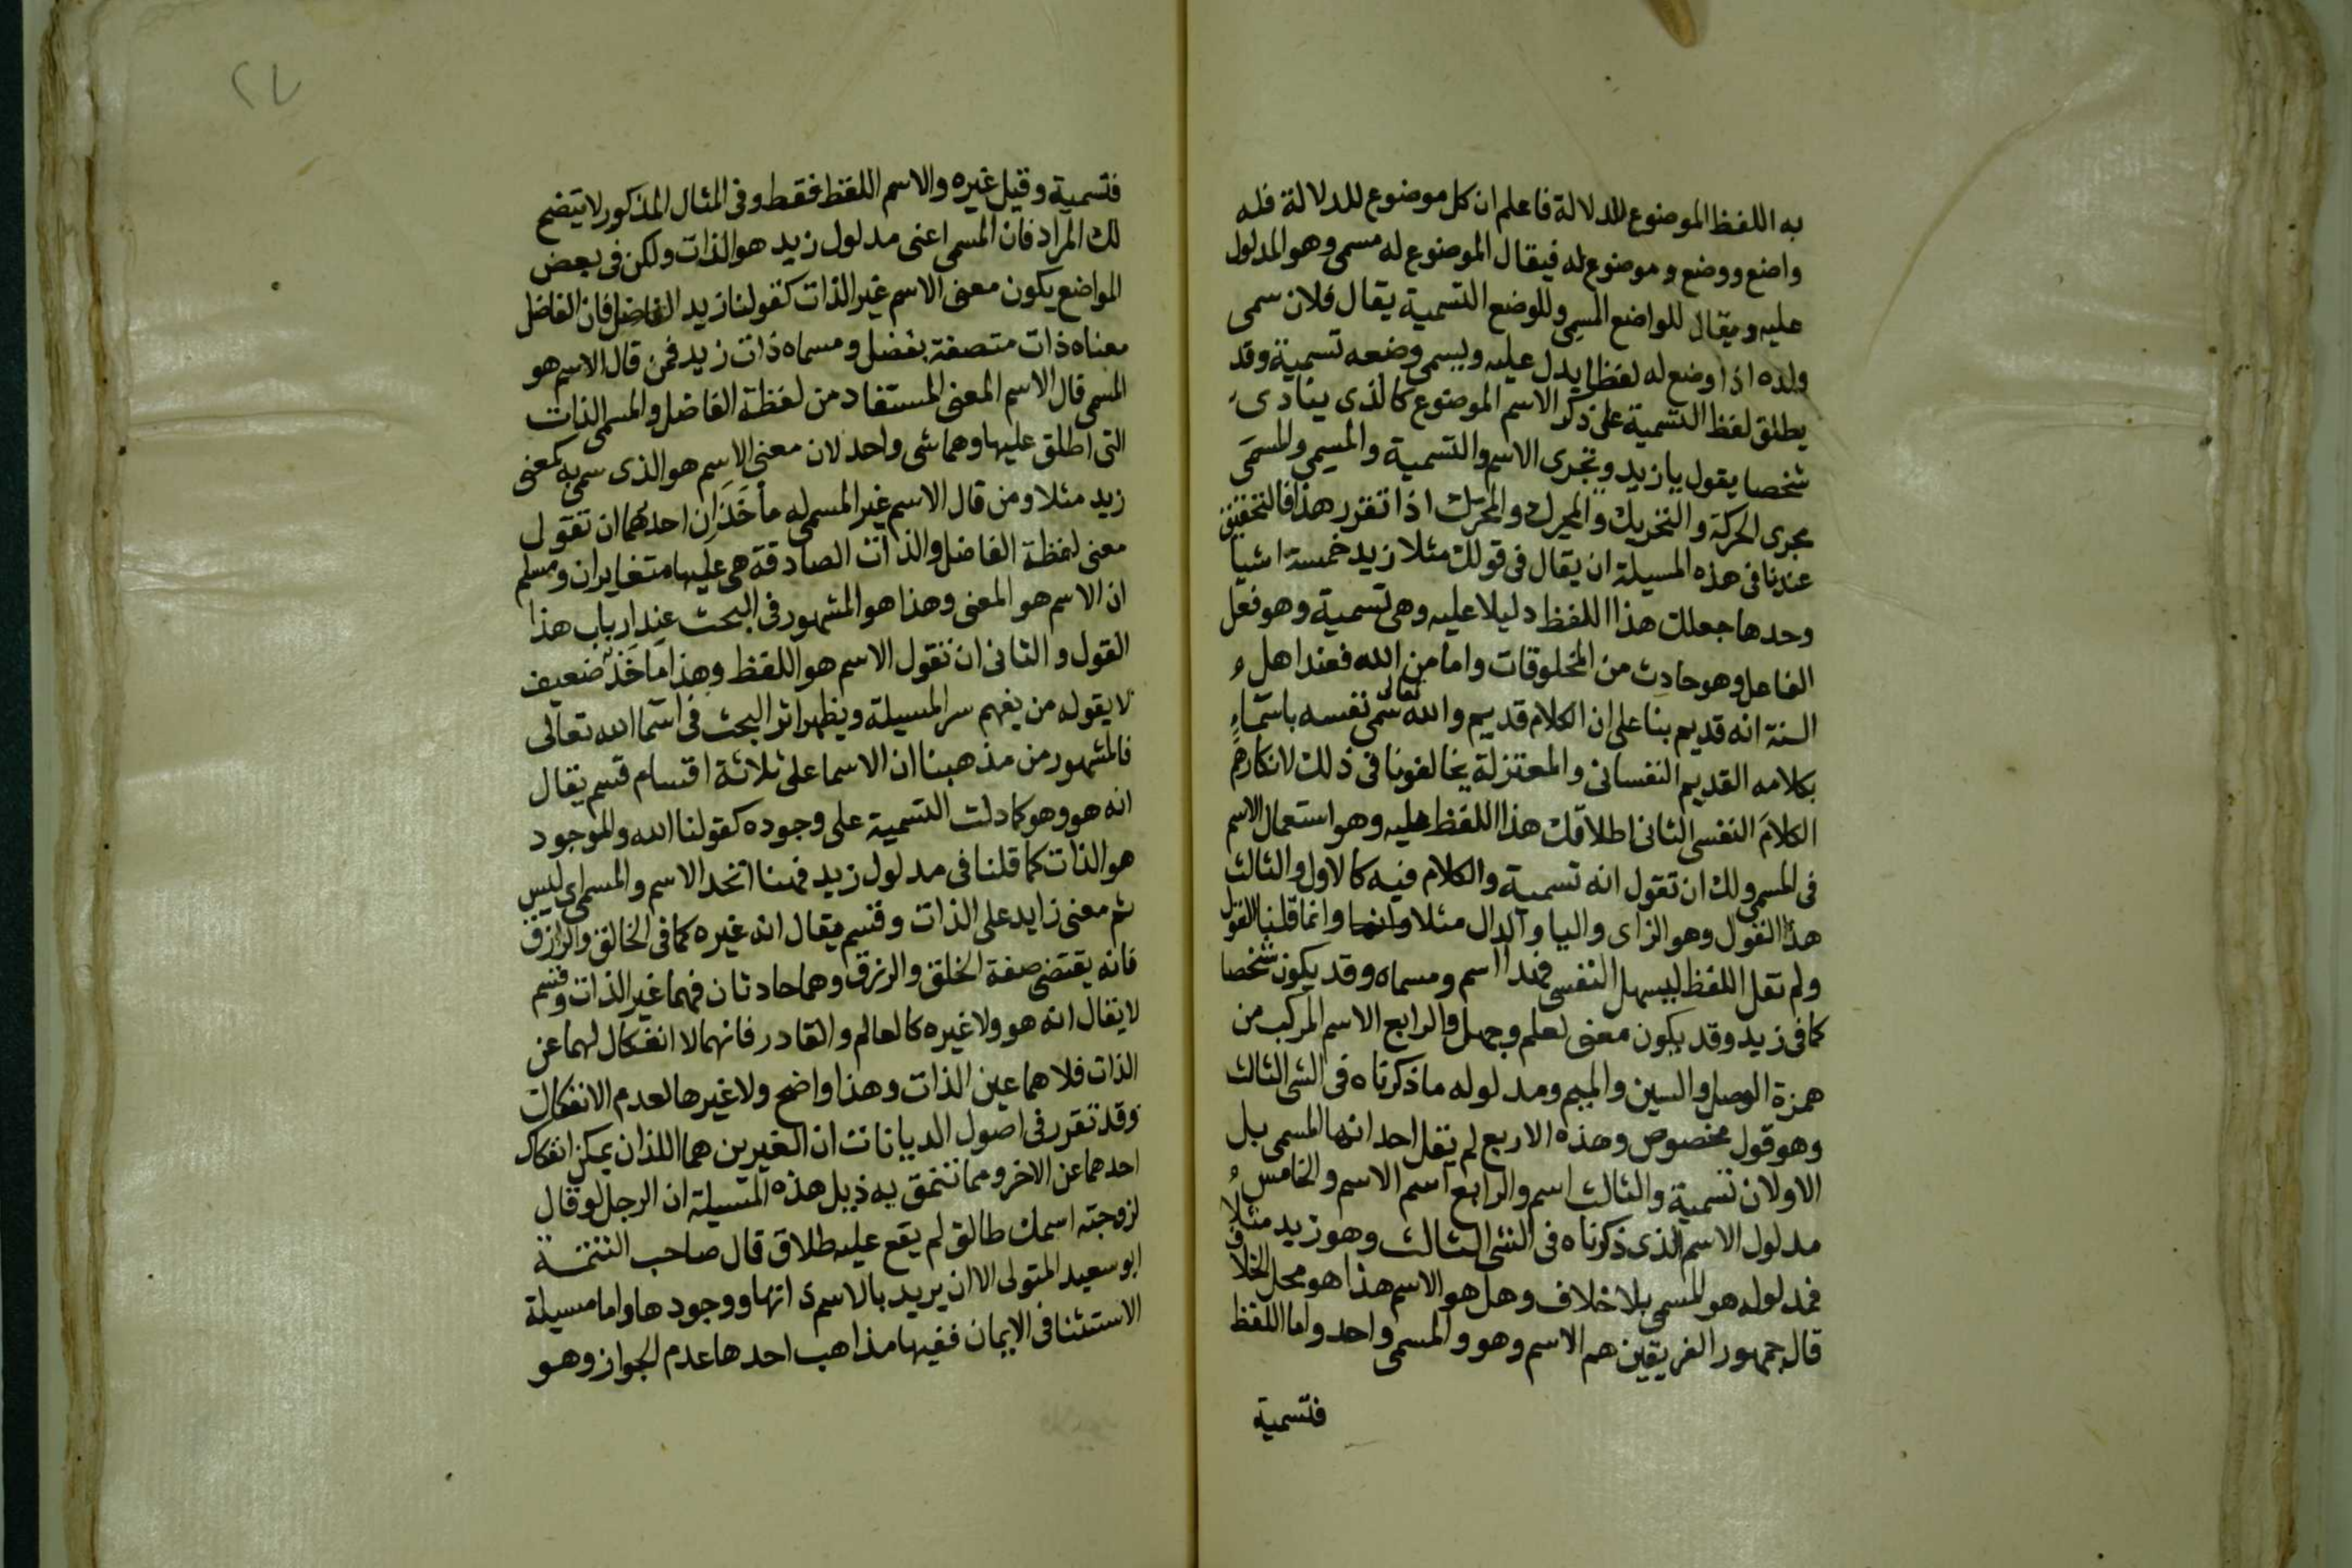 به اللفظ الموضوع للدلالة فاعلم ان كل موضوع للدلالة فله
واضع ووضع وموضوع له فيقال الموضوع له مسمى وهو المدلول
عليه ويقال للواضع المسمِي وللوضع التسمية يقال فلان سمى
ولده اذا وضع له لفظا يدل عليه ويسمى وضعه تسمية وقد
يطلق لفظ التسمية على ذكر الاسم الموضوع كالذى ينادى
شخصا يقول يا زيد وتجرى الاسم والتسمية والمسمِى والمسمَى
مجرى الحركة والتحريك والمحرِك والمحرَك اذا تقرر هذا فالتحقيق
عندنا فى هذه المسيلة ان يقال فى قولك مثلا زيد خمسة اشيا
وحدها جعلك هذا اللفظ دليلا عليه وهى تسمية وهو فعل
الفاعل وهو حادث من المخلوقات واما من الله فعند اهل
السنة انه قديم بنا على ان الكلام قديم والله تعالى سمى نفسه باسماءٍ
بكلامه القديم النفسانى والمعتزلة يخالفونا فى ذلك لانكارهم
الكلامَ النفسى الثانى اطلاقك هذا اللفظ عليه وهو استعمال الاسم
فى المسمى ولك ان تقول انه تسمية والكلام فيه كالاول والثالث
هذا القول وهو الزاى واليا والدال مثلا وانما قلنا القول
ولم نقل اللفظ ليسهل النفسى فهذا اسم ومسماه وقد يكون شخصا
كما فى زيد وقد يكون معنى لعلم وجهل والرابع الاسم المركب من
همزة الوصل والسين والميم ومدلوله ما ذكرناه فى الشى الثالث
وهو قول مخصوص وهذه الاربع لم يقل احد انها المسمى بل
الاولان تسمية والثالث اسم والرابع اسم الاسم والخامس
مدلول الاسم الذى ذكرناه فى الشى الثالث وهو زيد مثلا
فمدلوله هو المسمى بلا خلاف وهل هو الاسم هذا هو محل الخلاف
قال جمهور الفريقين هم الاسم وهو والمسمى واحد واما اللفظ
فتسمية
٢٧
فتسمية وقيل غيره والاسم اللفظ فقط وفى المثال المذكور لا يتضح
لك المراد فان المسمى اعنى مدلول زيد هو الذات ولكن فى بعض
المواضع يكون معنى الاسم غير الذات كقولنا زيد الفاضل فان الفاضل
معناه ذات متصفة بفضل ومسماه ذات زيد فمن قال الاسم هو
المسمى قال الاسم المعنى المستفاد من لفظة الفاضل والمسمى الذات
التى اطلق عليها وهما شى واحد لان معنى الاسم هو الذى سمى به كمعنى
زيد مثلا ومن قال الاسم غير المسمى له مأخَذَان احدهما ان تقول
معنى لفظة الفاضل والذات الصادقة هى عليها متغايران ومسلم
ان الاسم هو المعنى وهذا هو المشهور فى البحث عند ارباب هذا
القول والثانى ان نقول الاسم هو اللفظ وهذا مأخذ ضعيف
لا يقوله من يفهم سر المسيلة ويظهر اثر البحث فى اسما الله تعالى
فالمشهور من مذهبنا ان الاسما على ثلاثة اقسام قسم يقال
انه هو وهو كما دلت التسمية على وجوده كقولنا الله والموجود
هو الذات كما قلنا فى مدلول زيد فهنا اتحد الاسم والمسمى اى ليس
ثم معنى زايد على الذات وقسم يقال انه غيره كما فى الخالق والرازق
فانه يقتضى صفة الخلق والرزق وهما حادثان فهما غير الذات وقسم
لا يقال انه هو ولا غيره كالعالم والقادر فانهما لا انفكاك لهما عن
الذات فلا هما عين الذات وهذا واضح ولا غيرها لعدم الانفكاك
وقد تقرر فى اصول الديانات ان الغيرين هما اللذان يمكن انفكاك
احدهما عن الاخر ومما ننمق به ذيل هذه المسيلة ان الرجل لو قال
لزوجته اسمك طالق لم يقع عليه طلاق قال صاحب التتمة
ابو سعيد المتولى الا ان يريد بالاسم ذاتها ووجودها واما مسيلة
الاستثنا فى الايمان ففيها مذاهب احدها عدم الجواز وهو